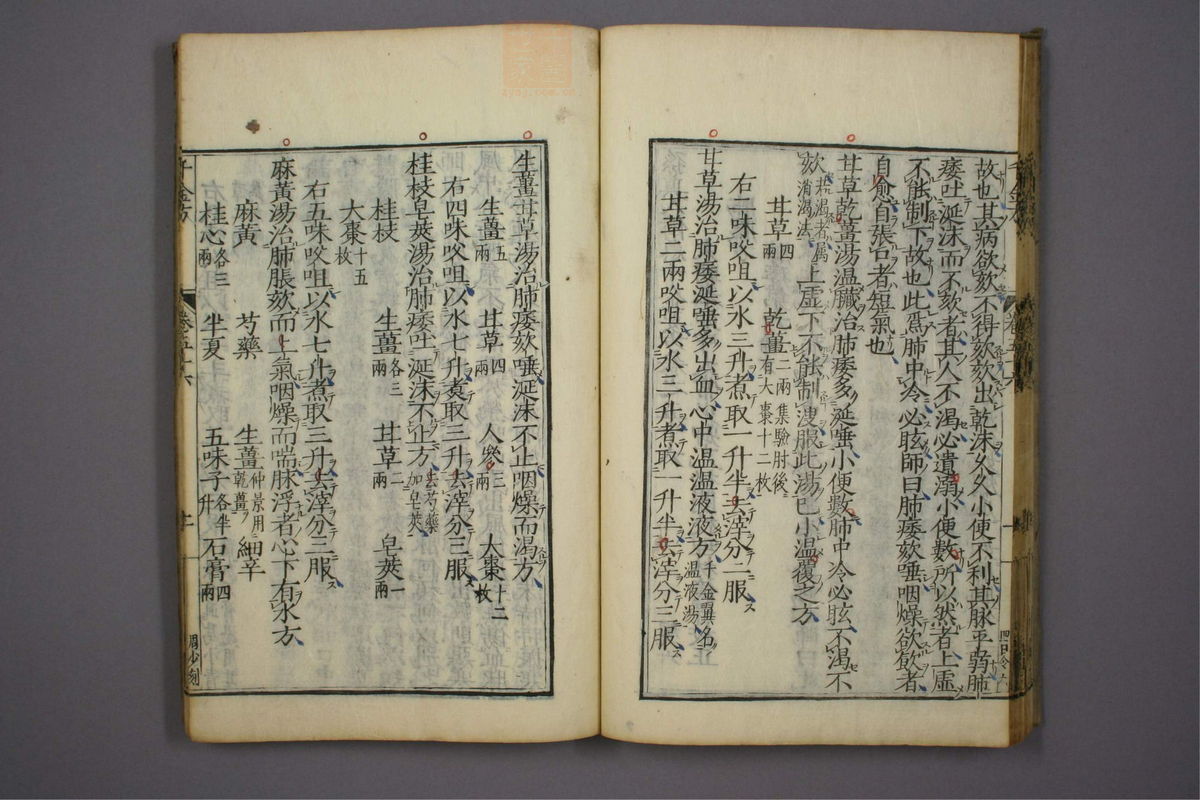 故也其病欲欬不得欬欬出乾沫久久小便不利其脉平弱肺
痿吐涎沫而不欬者其人不渴必遺溺小便數所以然者上虛
不能制下故也此爲肺中冷必眩師曰肺痿欬唾咽燥欲飲者
自愈自張口者短氣也
甘草乾薑湯溫臟治肺痿多涎唾小便數肺中冷必眩不渴不
欬若渴者屬消渴法上虛下不能制溲服此湯已小溫覆之方
甘草四兩 乾薑二兩集驗肘後有大棗十二枚
右二味㕮咀以水三升煮取一升半去滓分二服
甘草湯治肺痿涎唾多出血心中溫溫液液方千金翼名溫液湯
甘草二兩㕮咀以水三升煮取一升半去滓分三服
生薑甘草湯治肺痿欬唾涎沫不止咽燥而渴方
生薑五兩 甘草四兩 人參三兩 大棗十二枚
右四味㕮咀以水七升煮取三升去滓分三服
桂枝皂莢湯治肺痿吐涎沫不止方去芍藥加皂莢
桂枝 生薑各三兩 甘草二兩 皂莢一兩
大棗十五枚
右五味㕮咀以水七升煮取三升去滓分三服
麻黃湯治肺脹欬而上氣咽燥而喘脉浮者心下有水方
麻黃 芍藥 生薑仲景用乾薑 細辛
桂心各三兩 半夏 五味子各半升 石膏四兩
千金方 卷五十六